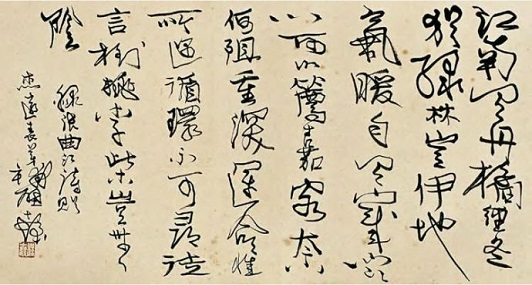 江南有丹橘經冬
猶綠林豈伊地
氣暖自有歲寒心
可以薦嘉客奈
何阻重深運命惟
所遇循環不可尋徒
言樹桃李此木豈無
陰
錄張曲江詩